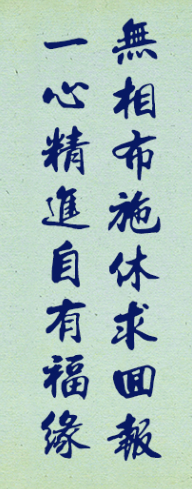 無相布施休求回報
一心精進自有福緣